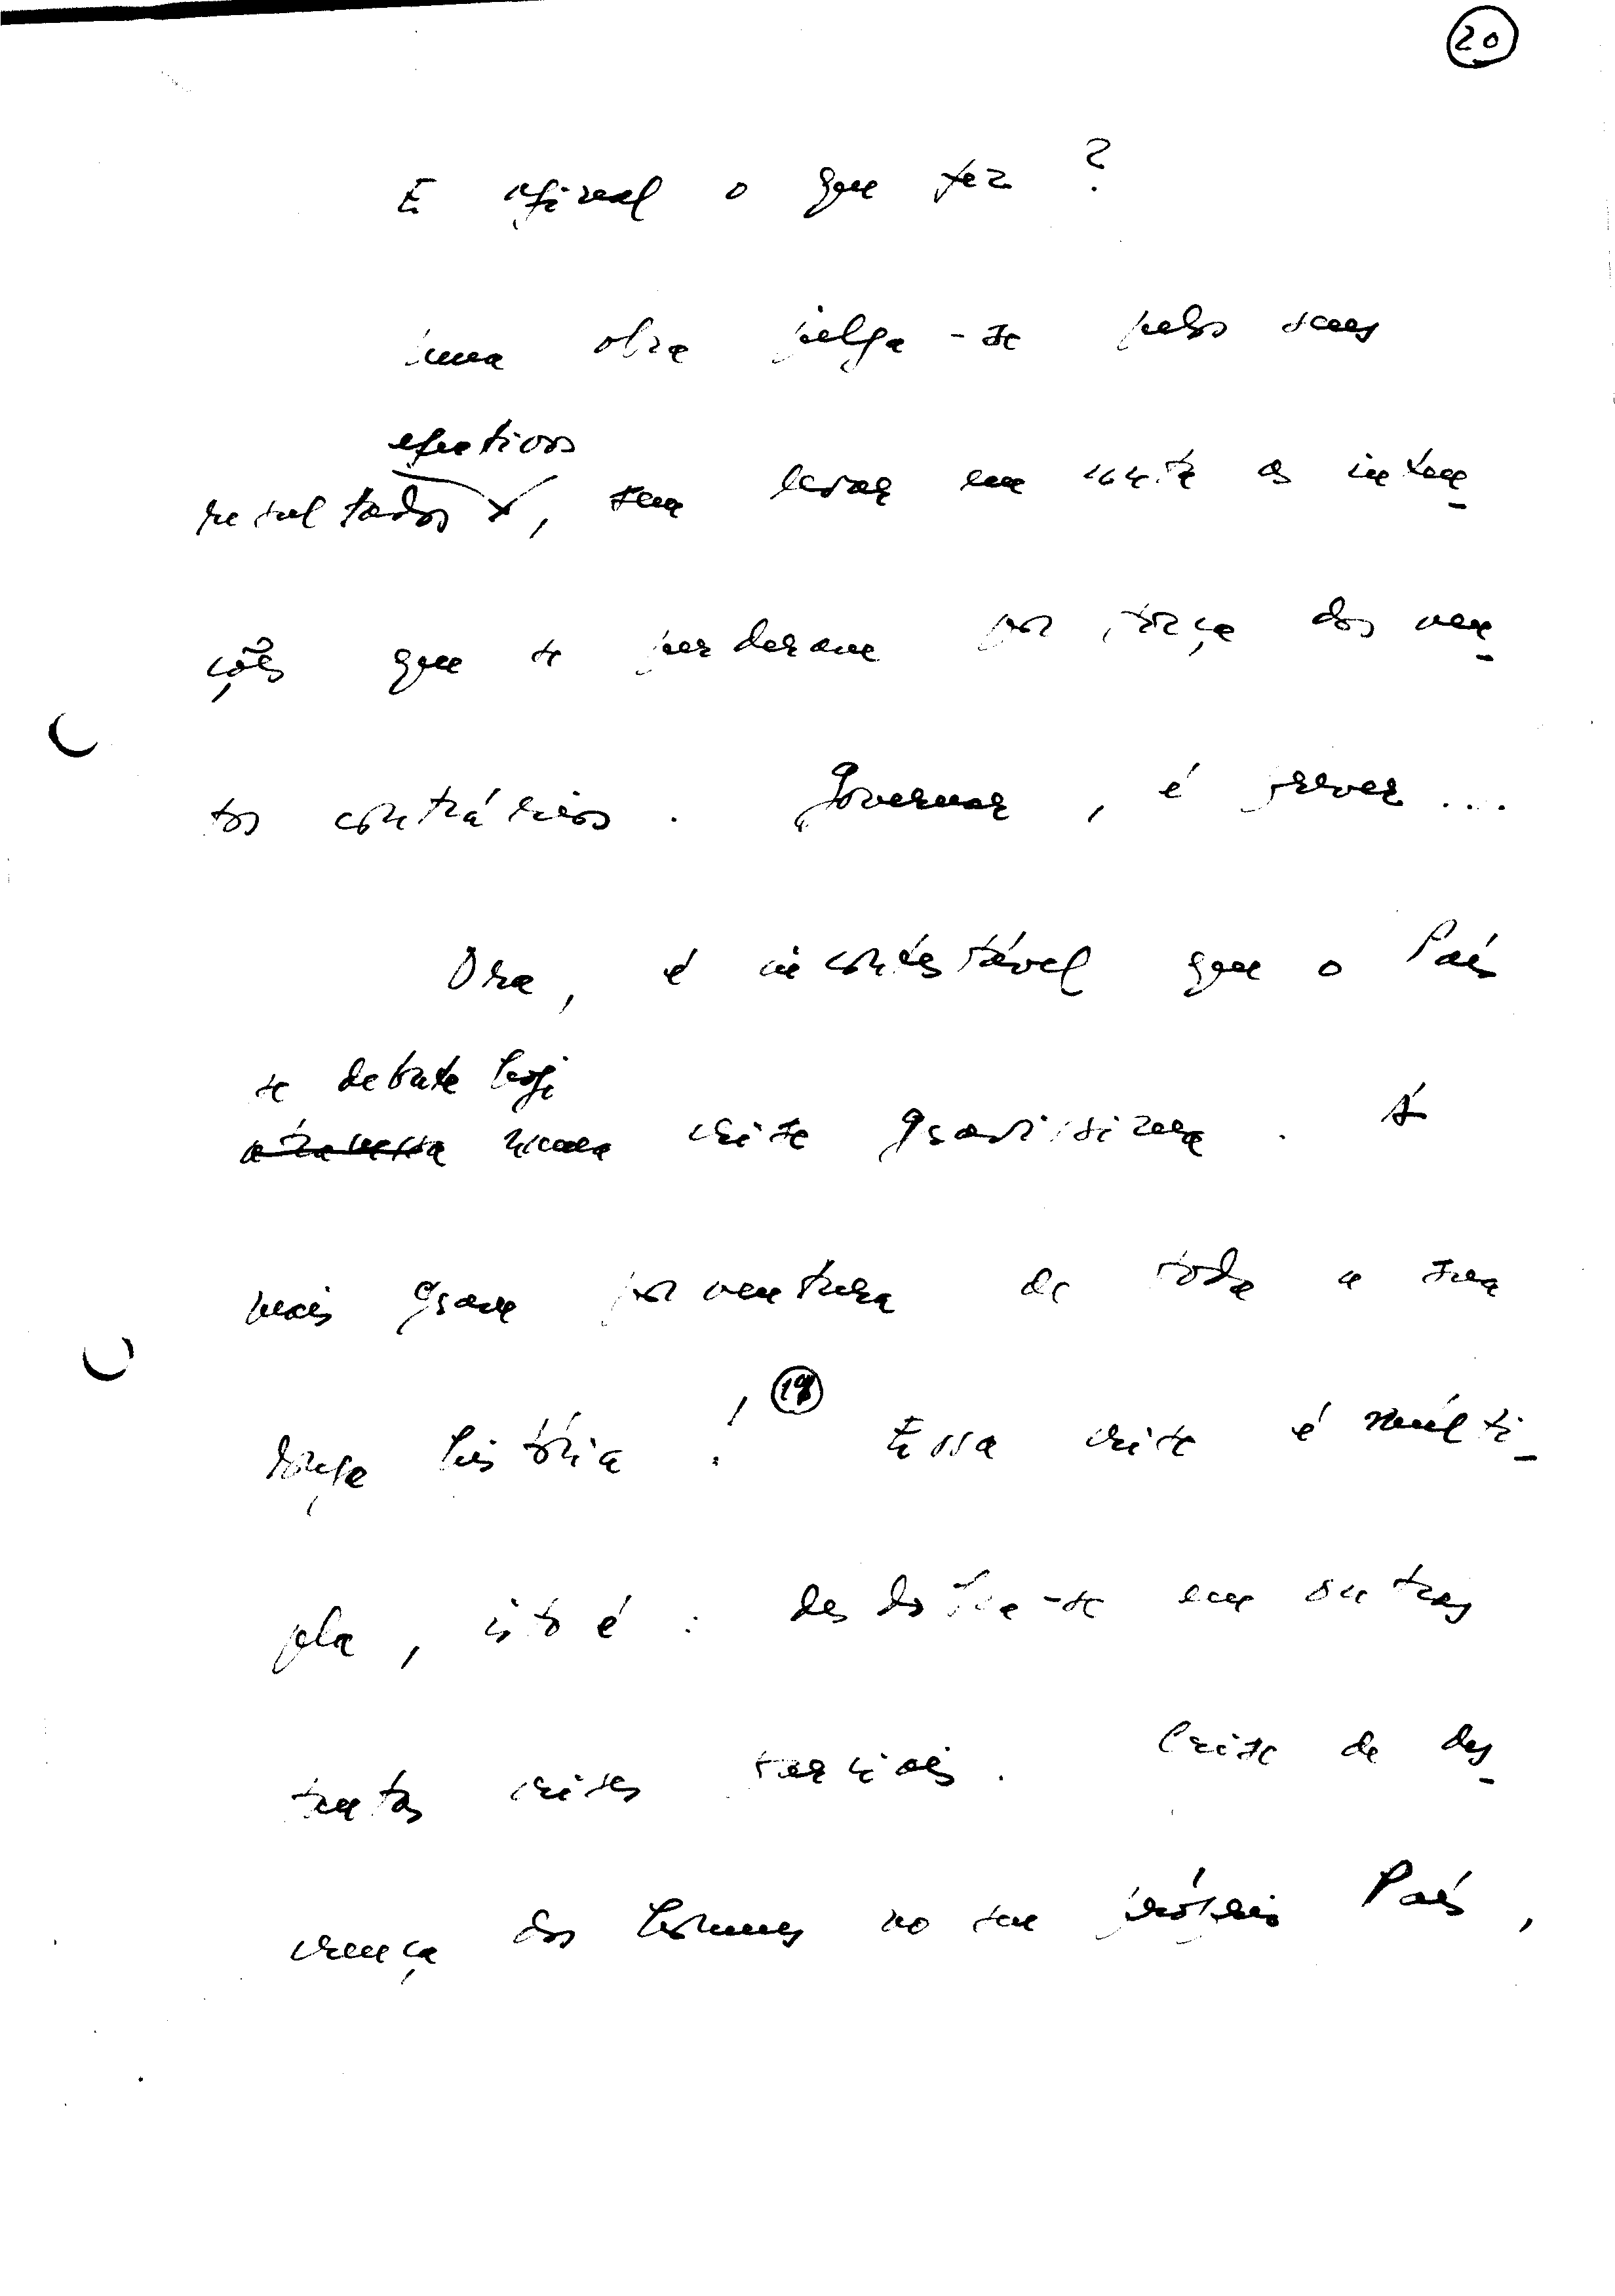 20
E afinal o que fez?
Uma obra julga-se pelos seus
efectivos
resultados, sem levar em conta as inten-
ções que se perderam por força dos ven-
tos contrários. Governar, é prever...
Ora, é incontestável que o País
se debate hoje
atravessa numa crise gravíssima. A
mais grave porventura de toda a sua
longa história! 19 Essa crise é múlti-
pla, isto é: desdobra-se em outras
tantas crises parciais. Crise de des-
crença dos homens no seu próprio País,